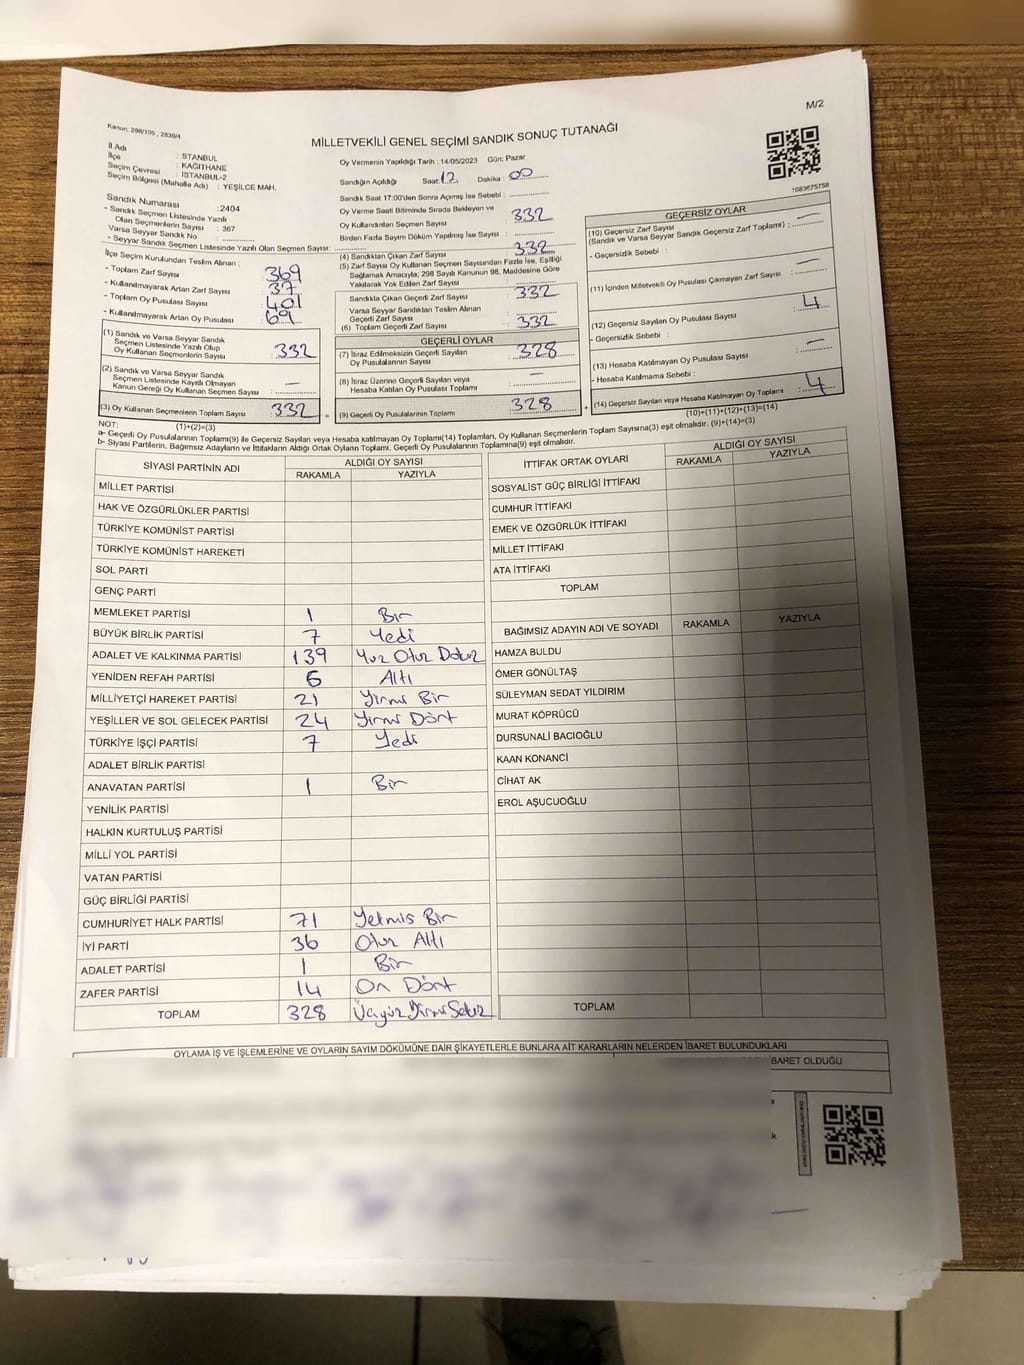 M/2
Kanun: 298/105, 2839/4
MİLLETVEKİLİ GENEL SEÇİMİ SANDIK SONUÇ TUTANAĞI
İl Adı : STANBUL
İlçe : KAĞITHANE
Seçim Çevresi : İSTANBUL-2
Seçim Bölgesi (Mahalle Adı) : YEŞİLCE MAH.
Oy Vermenin Yapıldığı Tarih : 14/05/2023 Gün: Pazar
Sandığın Açıldığı Saat: 12 Dakika : 00
Sandık Saat 17:00'den Sonra Açılmış İse Sebebi :
1083675758
Sandık Numarası : 2404
- Sandık Seçmen Listesinde Yazılı
Olan Seçmenlerin Sayısı : 367
Varsa Seyyar Sandık No :
- Seyyar Sandık Seçmen Listesinde Yazılı Olan Seçmen Sayısı:
İlçe Seçim Kurulundan Teslim Alınan :
- Toplam Zarf Sayısı : 369
- Kullanılmayarak Artan Zarf Sayısı : 37
- Toplam Oy Pusulası Sayısı : 401
- Kullanılmayarak Artan Oy Pusulası : 69
(1) Sandık ve Varsa Seyyar Sandık
Seçmen Listesinde Yazılı Olup
Oy Kullanan Seçmenlerin Sayısı : 332
(2) Sandık ve Varsa Seyyar Sandık
Seçmen Listesinde Kayıtlı Olmayan
Kanun Gereği Oy Kullanan Seçmen Sayısı : —
(3) Oy Kullanan Seçmenlerin Toplam Sayısı : 332
(1)+(2)=(3)
Oy Verme Saati Bitiminde Sırada Bekleyen ve
Oy Kullandırılan Seçmen Sayısı : 332
Birden Fazla Sayım Döküm Yapılmış İse Sayısı :
(4) Sandıktan Çıkan Zarf Sayısı : 332
(5) Zarf Sayısı Oy Kullanan Seçmen Sayısından Fazla İse, Eşitliği
Sağlamak Amacıyla; 298 Sayılı Kanunun 98. Maddesine Göre
Yakılarak Yok Edilen Zarf Sayısı :
Sandıkta Çıkan Geçerli Zarf Sayısı : 332
Varsa Seyyar Sandıktan Teslim Alınan
Geçerli Zarf Sayısı :
(6) Toplam Geçerli Zarf Sayısı : 332
GEÇERLİ OYLAR
(7) İtiraz Edilmeksizin Geçerli Sayılan
Oy Pusulalarının Sayısı : 328
(8) İtiraz Üzerine Geçerli Sayılan veya
Hesaba Katılan Oy Pusulası Toplamı : —
(9) Geçerli Oy Pusulalarının Toplamı : 328
GEÇERSİZ OYLAR
(10) Geçersiz Zarf Sayısı
(Sandık ve Varsa Seyyar Sandık Geçersiz Zarf Toplamı) : —
- Geçersizlik Sebebi :
(11) İçinden Milletvekili Oy Pusulası Çıkmayan Zarf Sayısı : —
(12) Geçersiz Sayılan Oy Pusulası Sayısı : 4
- Geçersizlik Sebebi :
(13) Hesaba Katılmayan Oy Pusulası Sayısı : —
- Hesaba Katılmama Sebebi :
(14) Geçersiz Sayılan veya Hesaba Katılmayan Oy Toplamı : 4
(10)+(11)+(12)+(13)=(14)
NOT:
a- Geçerli Oy Pusulalarının Toplamı(9) ile Geçersiz Sayılan veya Hesaba katılmayan Oy Toplamı(14) Toplamları, Oy Kullanan Seçmenlerin Toplam Sayısına(3) eşit olmalıdır. (9)+(14)=(3)
b- Siyasi Partilerin, Bağımsız Adayların ve İttifakların Aldığı Ortak Oyların Toplamı, Geçerli Oy Pusulalarının Toplamına(9) eşit olmalıdır.
SİYASİ PARTİNİN ADI ALDIĞI OY SAYISI
RAKAMLA YAZIYLA
MİLLET PARTİSİ
HAK VE ÖZGÜRLÜKLER PARTİSİ
TÜRKİYE KOMÜNİST PARTİSİ
TÜRKİYE KOMÜNİST HAREKETİ
SOL PARTİ
GENÇ PARTİ
MEMLEKET PARTİSİ 1 Bir
BÜYÜK BİRLİK PARTİSİ 7 Yedi
ADALET VE KALKINMA PARTİSİ 139 Yüz Otuz Dokuz
YENİDEN REFAH PARTİSİ 6 Altı
MİLLİYETÇİ HAREKET PARTİSİ 21 Yirmi Bir
YEŞİLLER VE SOL GELECEK PARTİSİ 24 Yirmi Dört
TÜRKİYE İŞÇİ PARTİSİ 7 Yedi
ADALET BİRLİK PARTİSİ
ANAVATAN PARTİSİ 1 Bir
YENİLİK PARTİSİ
HALKIN KURTULUŞ PARTİSİ
MİLLİ YOL PARTİSİ
VATAN PARTİSİ
GÜÇ BİRLİĞİ PARTİSİ
CUMHURİYET HALK PARTİSİ 71 Yetmiş Bir
İYİ PARTİ 36 Otuz Altı
ADALET PARTİSİ 1 Bir
ZAFER PARTİSİ 14 On Dört
TOPLAM 328 Üçyüz Yirmi Sekiz
İTTİFAK ORTAK OYLARI ALDIĞI OY SAYISI
RAKAMLA YAZIYLA
SOSYALİST GÜÇ BİRLİĞİ İTTİFAKI
CUMHUR İTTİFAKI
EMEK VE ÖZGÜRLÜK İTTİFAKI
MİLLET İTTİFAKI
ATA İTTİFAKI
TOPLAM
BAĞIMSIZ ADAYIN ADI VE SOYADI RAKAMLA YAZIYLA
HAMZA BULDU
ÖMER GÖNÜLTAŞ
SÜLEYMAN SEDAT YILDIRIM
MURAT KÖPRÜCÜ
DURSUNALİ BACIOĞLU
KAAN KONANCİ
CİHAT AK
EROL AŞUCUOĞLU
TOPLAM
OYLAMA İŞ VE İŞLEMLERİNE VE OYLARIN SAYIM DÖKÜMÜNE DAİR ŞİKAYETLERLE BUNLARA AİT KARARLARIN NELERDEN İBARET BULUNDUKLARI
İBARET OLDUĞU